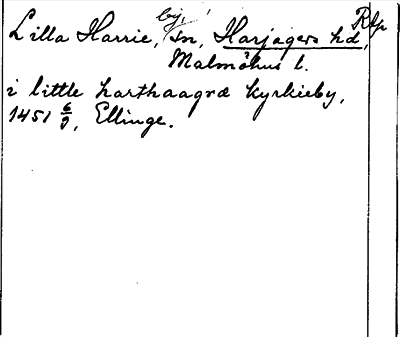 Lilla Harrie, by, sn, Harjagers hd, Rkp
Malmöhus l.
i little harthaagræ kyrkieby,
1451 6/9, Ellinge.